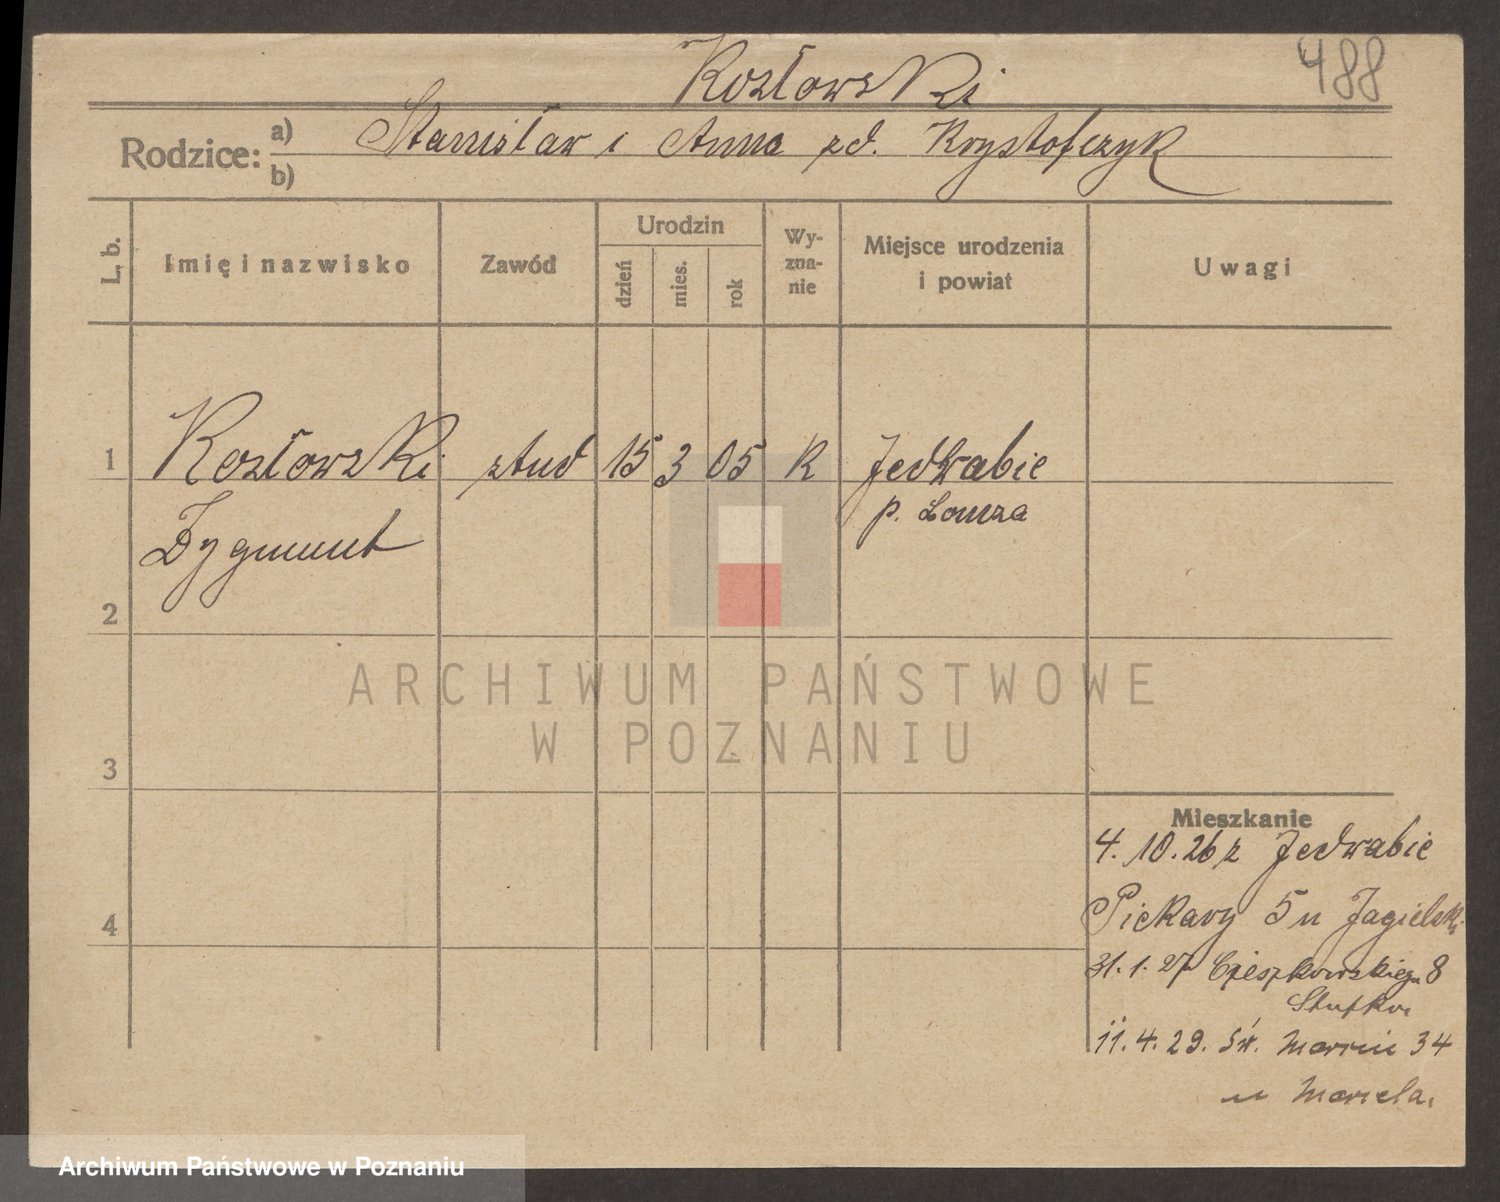 Kozłowski
488
Rodzice:
a) Stanisław i Anna zd. Krystofczyk
b)
L. b.
Imię i nazwisko
Zawód
Urodzin
dzień
mies.
rok
Wy-
zna-
nie
Miejsce urodzenia
i powiat
Uwagi
1 Kozłowski stud 15 3 05 K Jedwabie
p. Łomza
Zygmunt
2
ARCHIWUM PAŃSTWOWE
W POZNANIU
3
Mieszkanie
4. 10. 26 z Jedwabie
4
Piekary 5 u Jagielski
31. 1. 27 Cieszkowskiego 8
11. 4. 29. Św. Marcin 34
u
Archiwum Państwowe w Poznaniu